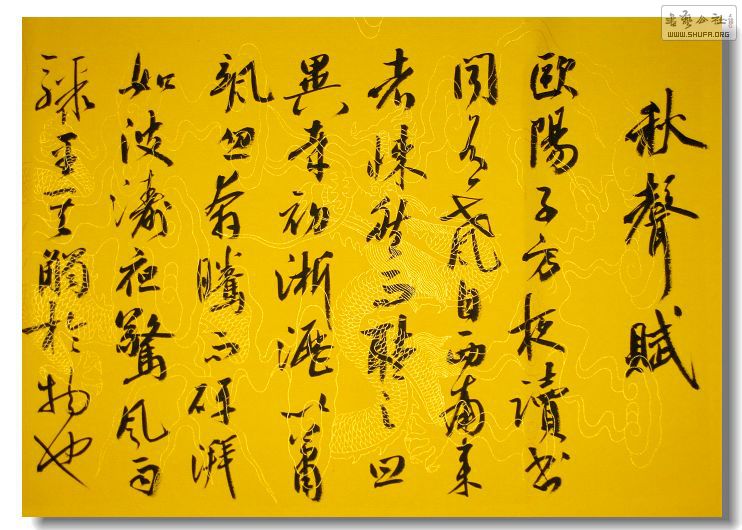 秋聲賦
歐陽子方夜讀書
聞有聲自西南來
者悚然而聽之曰
異哉初淅瀝以蕭
颯忽奔騰而砰湃
如波濤夜驚風雨
驟至其觸於物也
書藝公社
WWW.SHUFA.ORG